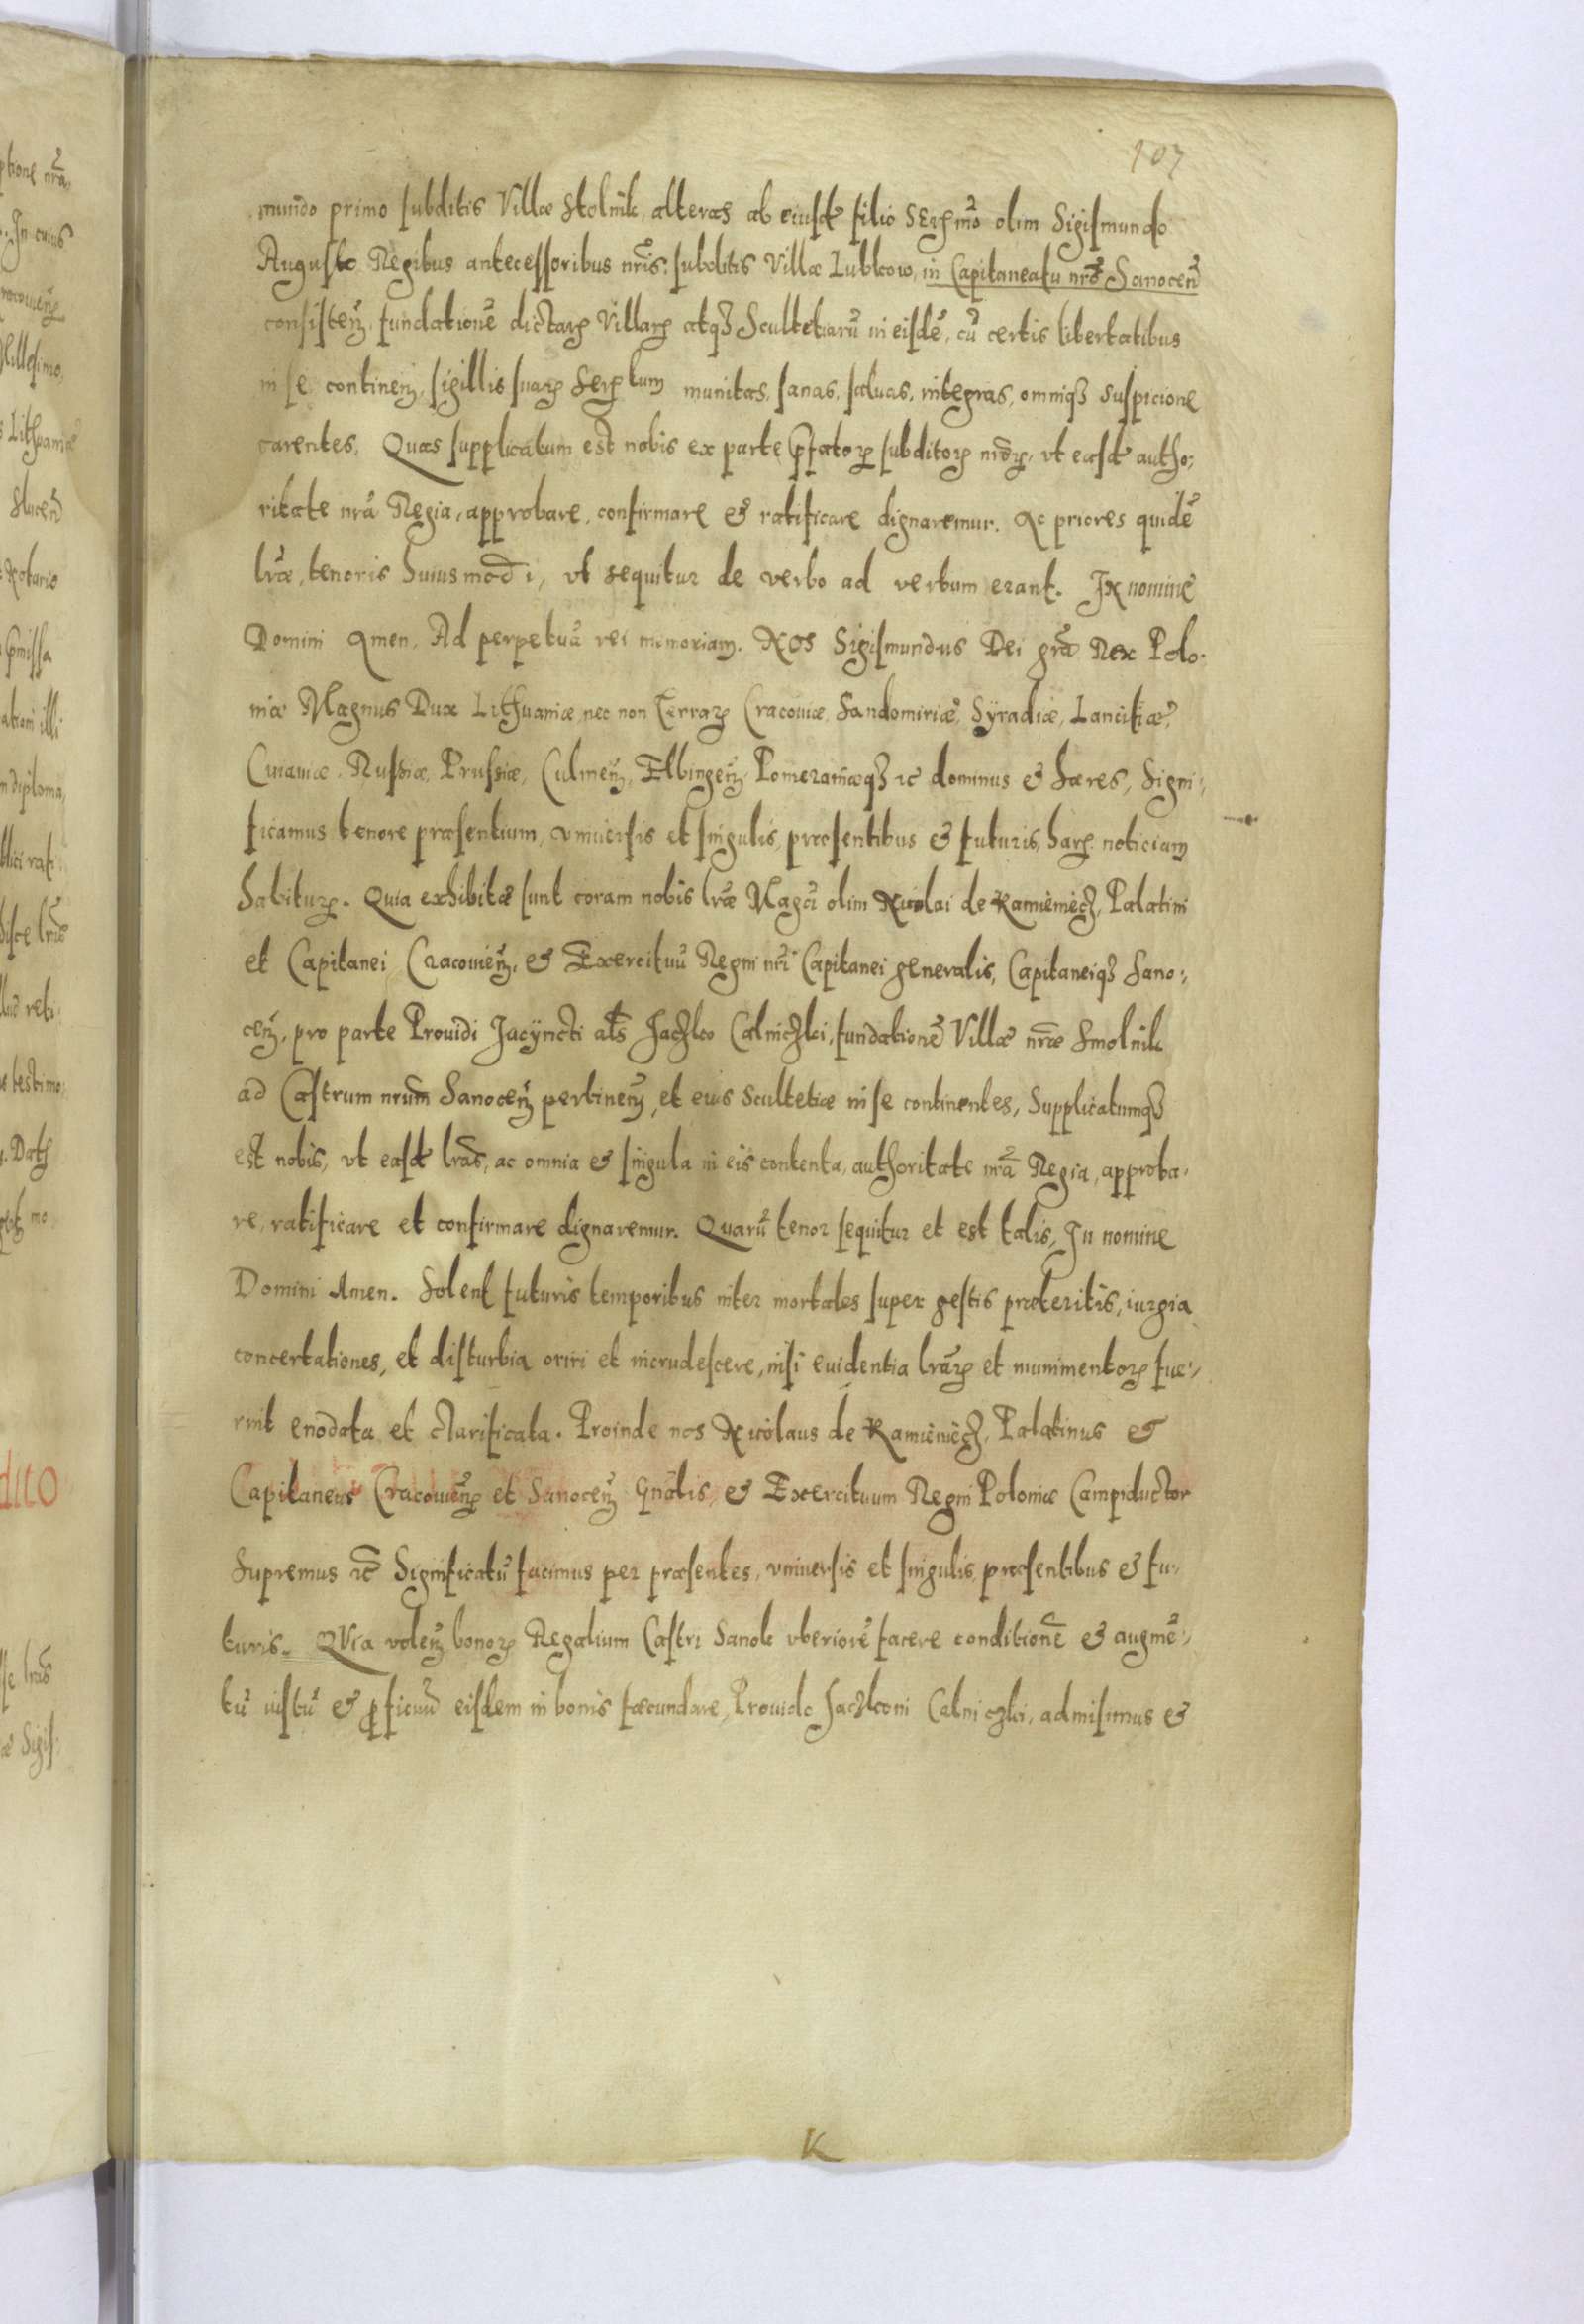 107
mundo primo subditis Villæ Stolnik, alteras ab eiusdē filio Serꝫmo olim Sigismundo
Augusto Regibus antecessoribus nr̄is, subditis Villæ Lubkow, in Capitaneatu nr̄o Sanocen̄
consisteñ, fundationē dictarꝫ Villarꝫ atqꝫ Scultetiarū in eisdē, cū certis libertatibus
in se contineñ, sigillis suarꝫ Serꝫtum munitas, sanas, saluas, integras, omniqꝫ suspicione
carentes. Quas supplicatum est nobis ex parte p̄fatorꝫ subditorꝫ nr̄orꝫ, vt easdē autho:
ritate nr̄a Regia, approbare, confirmare & ratificare dignaremur. Ac priores quidē
lr̄æ, tenoris huiusmodi, vt sequitur de verbo ad verbum erant. In nomine
Domini Amen. Ad perpetuā rei memoriam. Nos Sigismundus Dei gr̄a Rex Polo.
niæ Magnus Dux Lithuaniæ, nec non Terrarꝫ Cracouiæ, Sandomiriæ, Syradiæ, Lancitiæ,
Cuiauiæ, Russiæ, Prussiæ, Culmeñ, Elbingeñ, Pomeraniæqꝫ &c dominus & hæres, Signi:
ficamus tenore præsentium, vniuersis et singulis, præsentibus & futuris, harꝫ noticiam
habiturꝫ. Quia exhibitæ sunt coram nobis lr̄æ Magci olim Nicolai de Kamieniecz, Palatini
et Capitanei Cracouieñ, & Exercituū Regni nr̄i Capitanei generalis, Capitaneiqꝫ Sano:
ceñ, pro parte Prouidi Jacyncti als̄ Jaczko Calniczki, fundationē Villæ nr̄æ Smolnik
ad Castrum nr̄um Sanoceñ pertineñ, et eius Scultetiæ in se continentes, Supplicatumqꝫ
est nobis, vt easdē lr̄as, ac omnia & singula in eis contenta, authoritate nr̄a Regia, approba:
re, ratificare et confirmare dignaremur. Quarū tenor sequitur et est talis, In nomine
Domini Amen. Solent futuris temporibus inter mortales super gestis præteritis, iurgia
concertationes, et disturbia oriri et incrudescere, nisi euidentia lr̄arꝫ et munimentorꝫ fue:
rint enodata et clarificata. Proinde nos Nicolaus de Kamieniecz, Palatinus &
Capitaneus Cracouieñ et Sanoceñ Gn̄alis, & Exercituum Regni Poloniæ Campiductor
Supremus &c Significatū facimus per præsentes, vniuersis et singulis, præsentibus & fu:
turis. Quia voleñ bonorꝫ Regalium Castri Sanok vberiorē facere conditionē & augmē:
tū iustū & ꝓficuū eisdem in bonis fæcundare, Prouido Jaczkoni Calniczki, admisimus &
K